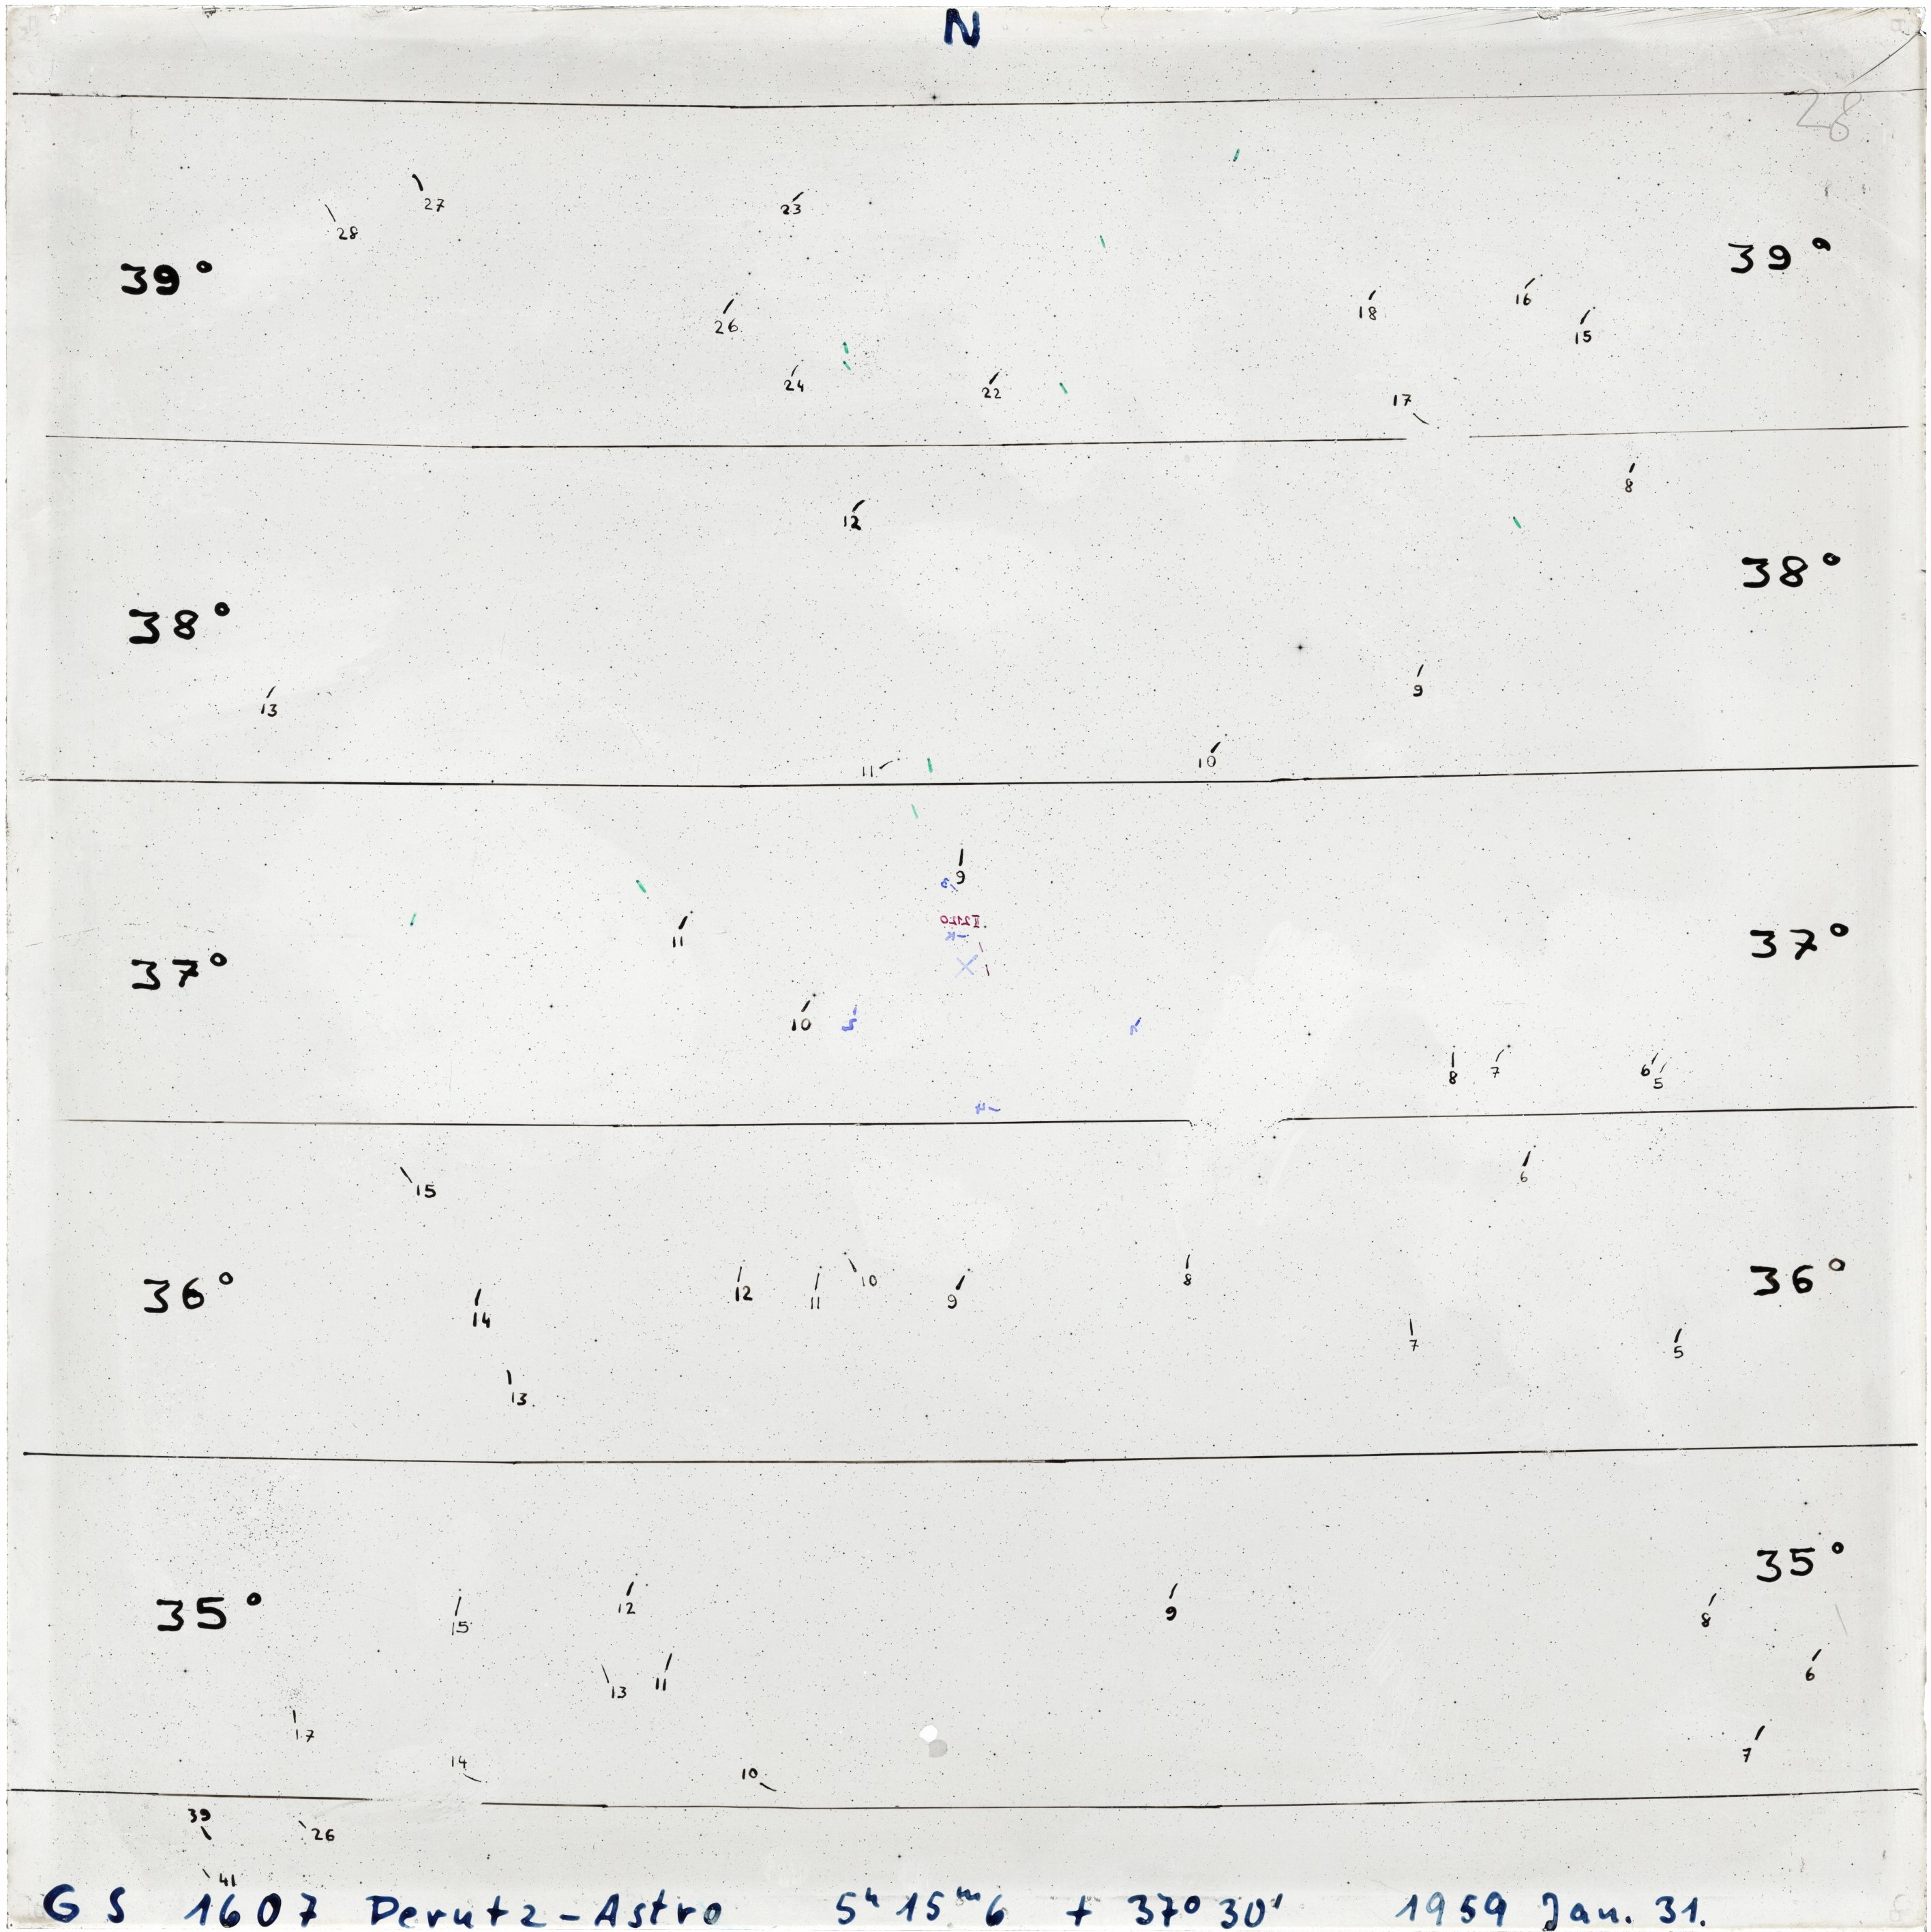 N
28
27
23
28
39° 39°
16
18
26
15
24
22
17
8
12
38° 38°
9
13
10
11
9
11
37° 37°
10
8 7 6 5
6
15
36° 36°
12 11 10 9 8
14
7 5
13
35° 35°
15 12 9 8
13 11 6
17
14 10 7
39
26
41
GS 1607 Perutz-Astro 5ʰ15ᵐ6 + 37°30' 1959 Jan. 31.